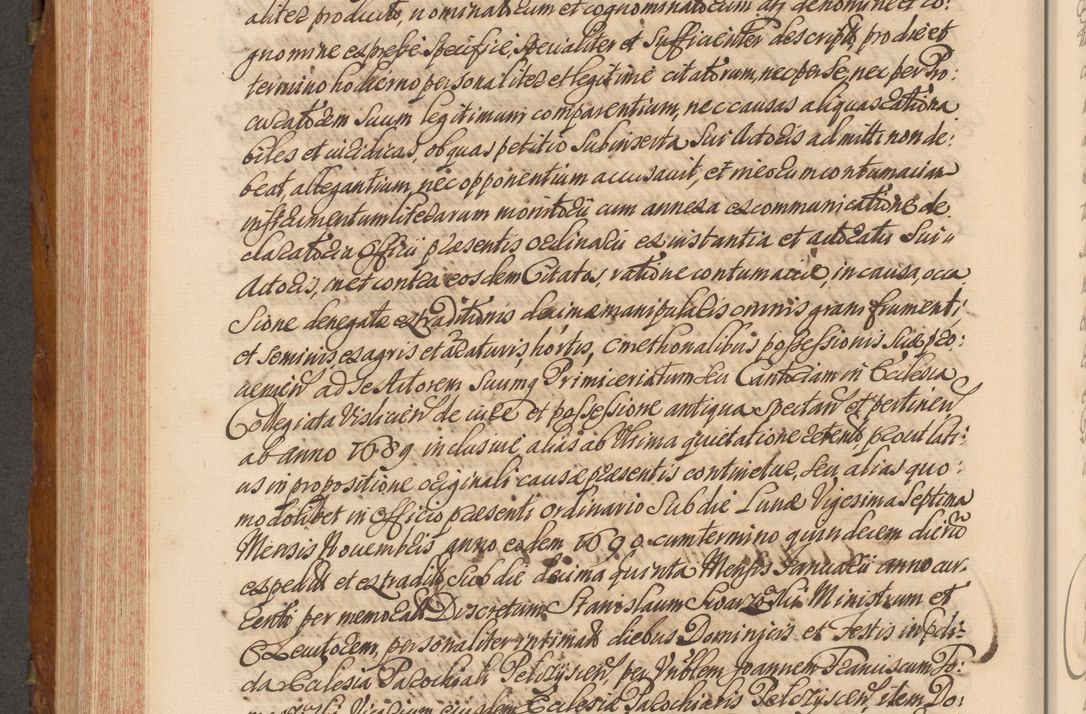 aliter producto, nominatorum et cognominatorum ac denomine et co:
gnomine expresse specifice, specialiter et sufficienter descript, pro die et
termino hodierno personaliter et legitime citatorum, nec per se, nec per Pro:
curatorem suum legitimum comparentium, nec causas aliquas rationa
biles et iuridicas, ob quas petitio subinserta sui Actoris admitti non de:
beat, allegantium, nec opponentium accusavit, et in eorum contumaciam
instrumentum literarum monitorii cum annexa excommunicatione de
claratoria Officii praesentis ordinarii ex instantia et ad sui
Actoris, met contra eosdem Citatos, ratione contumaciae, in causa, occa
sione denegatae extraditionis decimae manipularis omnis grani frumenti
et seminis, ex agris et araturis, hortis, Cmethonalibus possessionis suae pro:
venien ad se Actorem suumq Primiceriatum seu Cantoriam in Ecclesia
Collegiata Vislicien de iure et possessione antiqua spectan et pertinen
ab anno 1689 inclusive alias ab ultima quietatione retent, prout lati:
us in propositione originali causae praesentis continetur, seu alias quo:
modolibet in Officio praesenti ordinario sub die Lunae Vigesima Septima
Mensis Novembris anno eodem 1690 cum termino quindecem dierum
expedit et extradit, sub die decima quinta Mensis Januarii anno cur-
rento per memorat Discretum Stanislaum Ministrum et
Executorem, personaliter intimat diebus Dominicis et Festis in prae:
da Ecclesia Parochiali Pelczyscen, per Vnblem Joannem Franciscum
Vicarium eiusdem Ecclesiae Parochialis Pelczyscen, item Do: